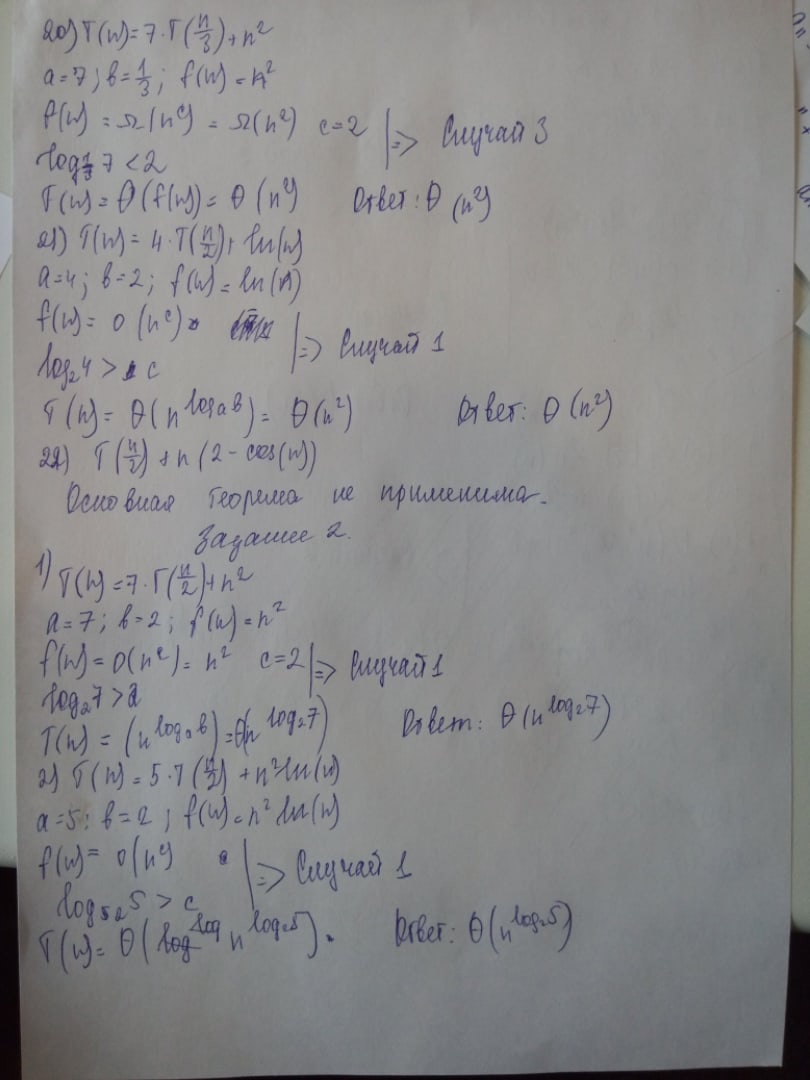 20) T(n)=7·T(n/3)+n²
a=7; b=1/3; f(n)=n²
f(n)=Ω(n^c)=Ω(n²) c=2 |=> Случай 3
log 7<2
T(n)=Θ(f(n)=Θ(n²) Ответ: Θ(n²)
21) T(n)=4·T(n/2)+ln(n)
a=4; b=2; f(n)=ln(n)
f(n)=O(n^c) |=> Случай 1
log₂4> c
T(n)=Θ(n^log a b)=Θ(n²) Ответ: Θ(n²)
22) T(n/2)+n(2-cos(n))
Основная теорема не применима.
Задание 2.
1) T(n)=7·T(n/2)+n²
a=7; b=2; f(n)=n²
f(n)=O(n^c)=n² c=2 |=> Случай 1
log₂7>2
T(n)=(n^log a b)=Θ(n^log₂7) Ответ: Θ(n^log₂7)
2) T(n)=5·T(n/2)+n²ln(n)
a=5; b=2; f(n)=n²ln(n)
f(n)=O(n^c) |=> Случай 1
log₂5>c
T(n)=Θ(n^log₂5). Ответ: Θ(n^log₂5)